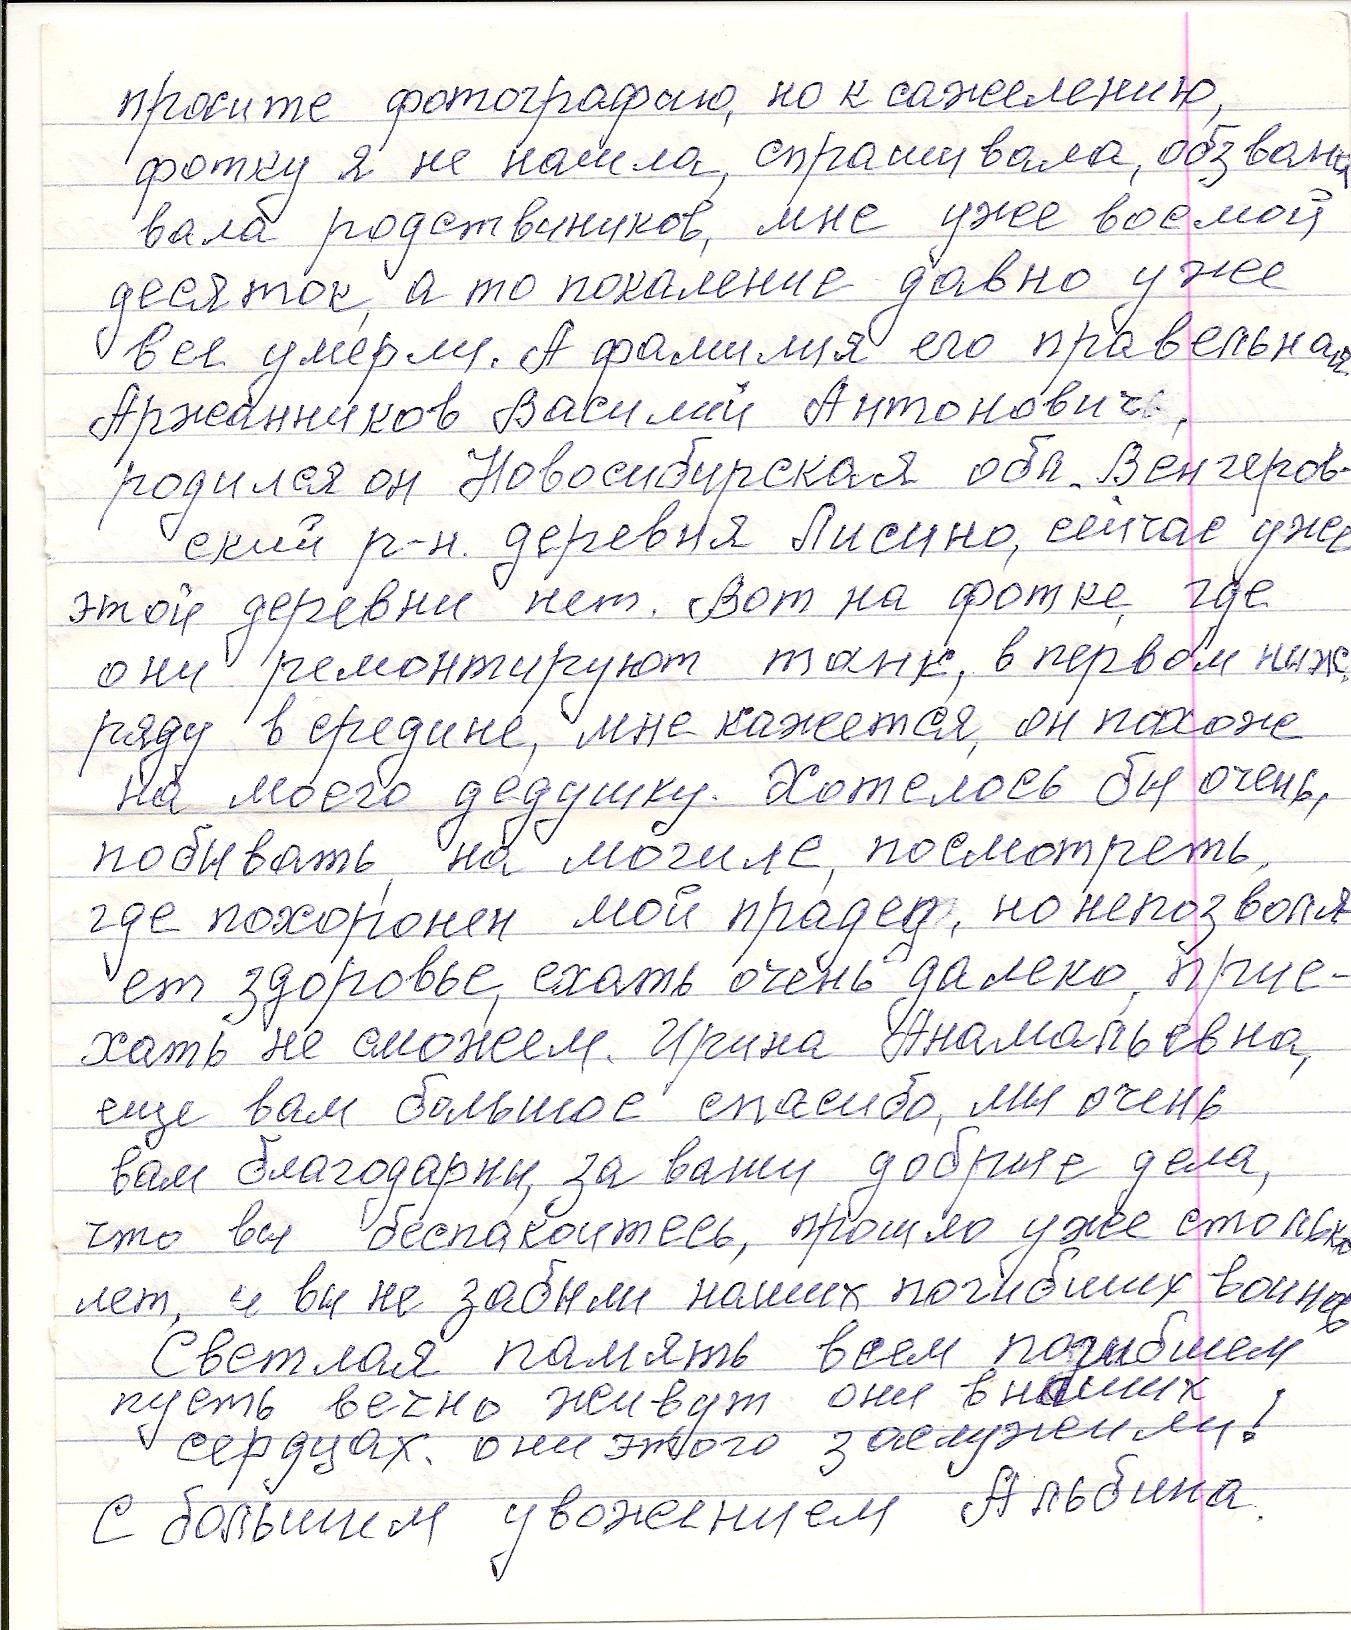 просите фотографию, но к сажелению,
фотку я не нашла, спрашивала, обзвани
вала родствиников, мне уже восмой
десяток, а то покаление давно уже
все умерли. А фамилия его правельная
Аржанников Василий Антонович,
родился он Новосибирская обл. Венгеров-
ский р-н. деревня Лисино, сейчас уже
этой деревни нет. Вот на фотке, где
они ремонтируют танк, в первом ниж.
ряду в средине, мне кажется, он похоже
на моего дедушку. Хотелось бы очень,
побывать, на могиле, посмотреть,
где похоронен мой прадед, но непозволя
ет здоровье, ехать очень далеко, прие-
хать не сможем. Ирина Анатольевна,
еще вам большое спасибо, мы очень
вам благодарны, за ваши добрые дела,
что вы беспакоитесь, прошло уже столько
лет, и вы не забыли наших погибших воинов
Светлая память всем погибшем
пусть вечно живут они в наших
сердцах. они этого заслужили!
С большим увожением Альбина.